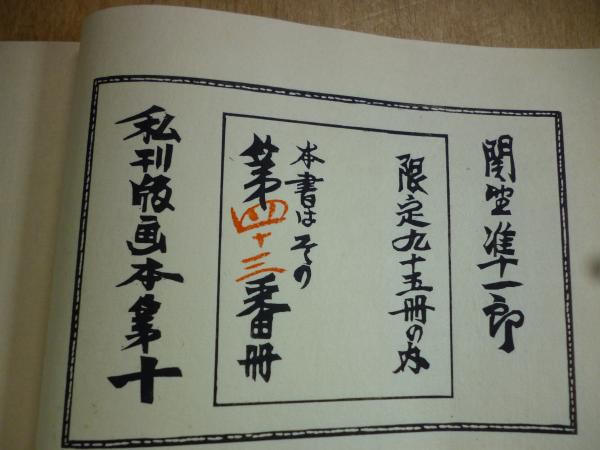 関野准一郎
限定九十五冊の内
本書はその
第四十三番冊
私刊版画本第十